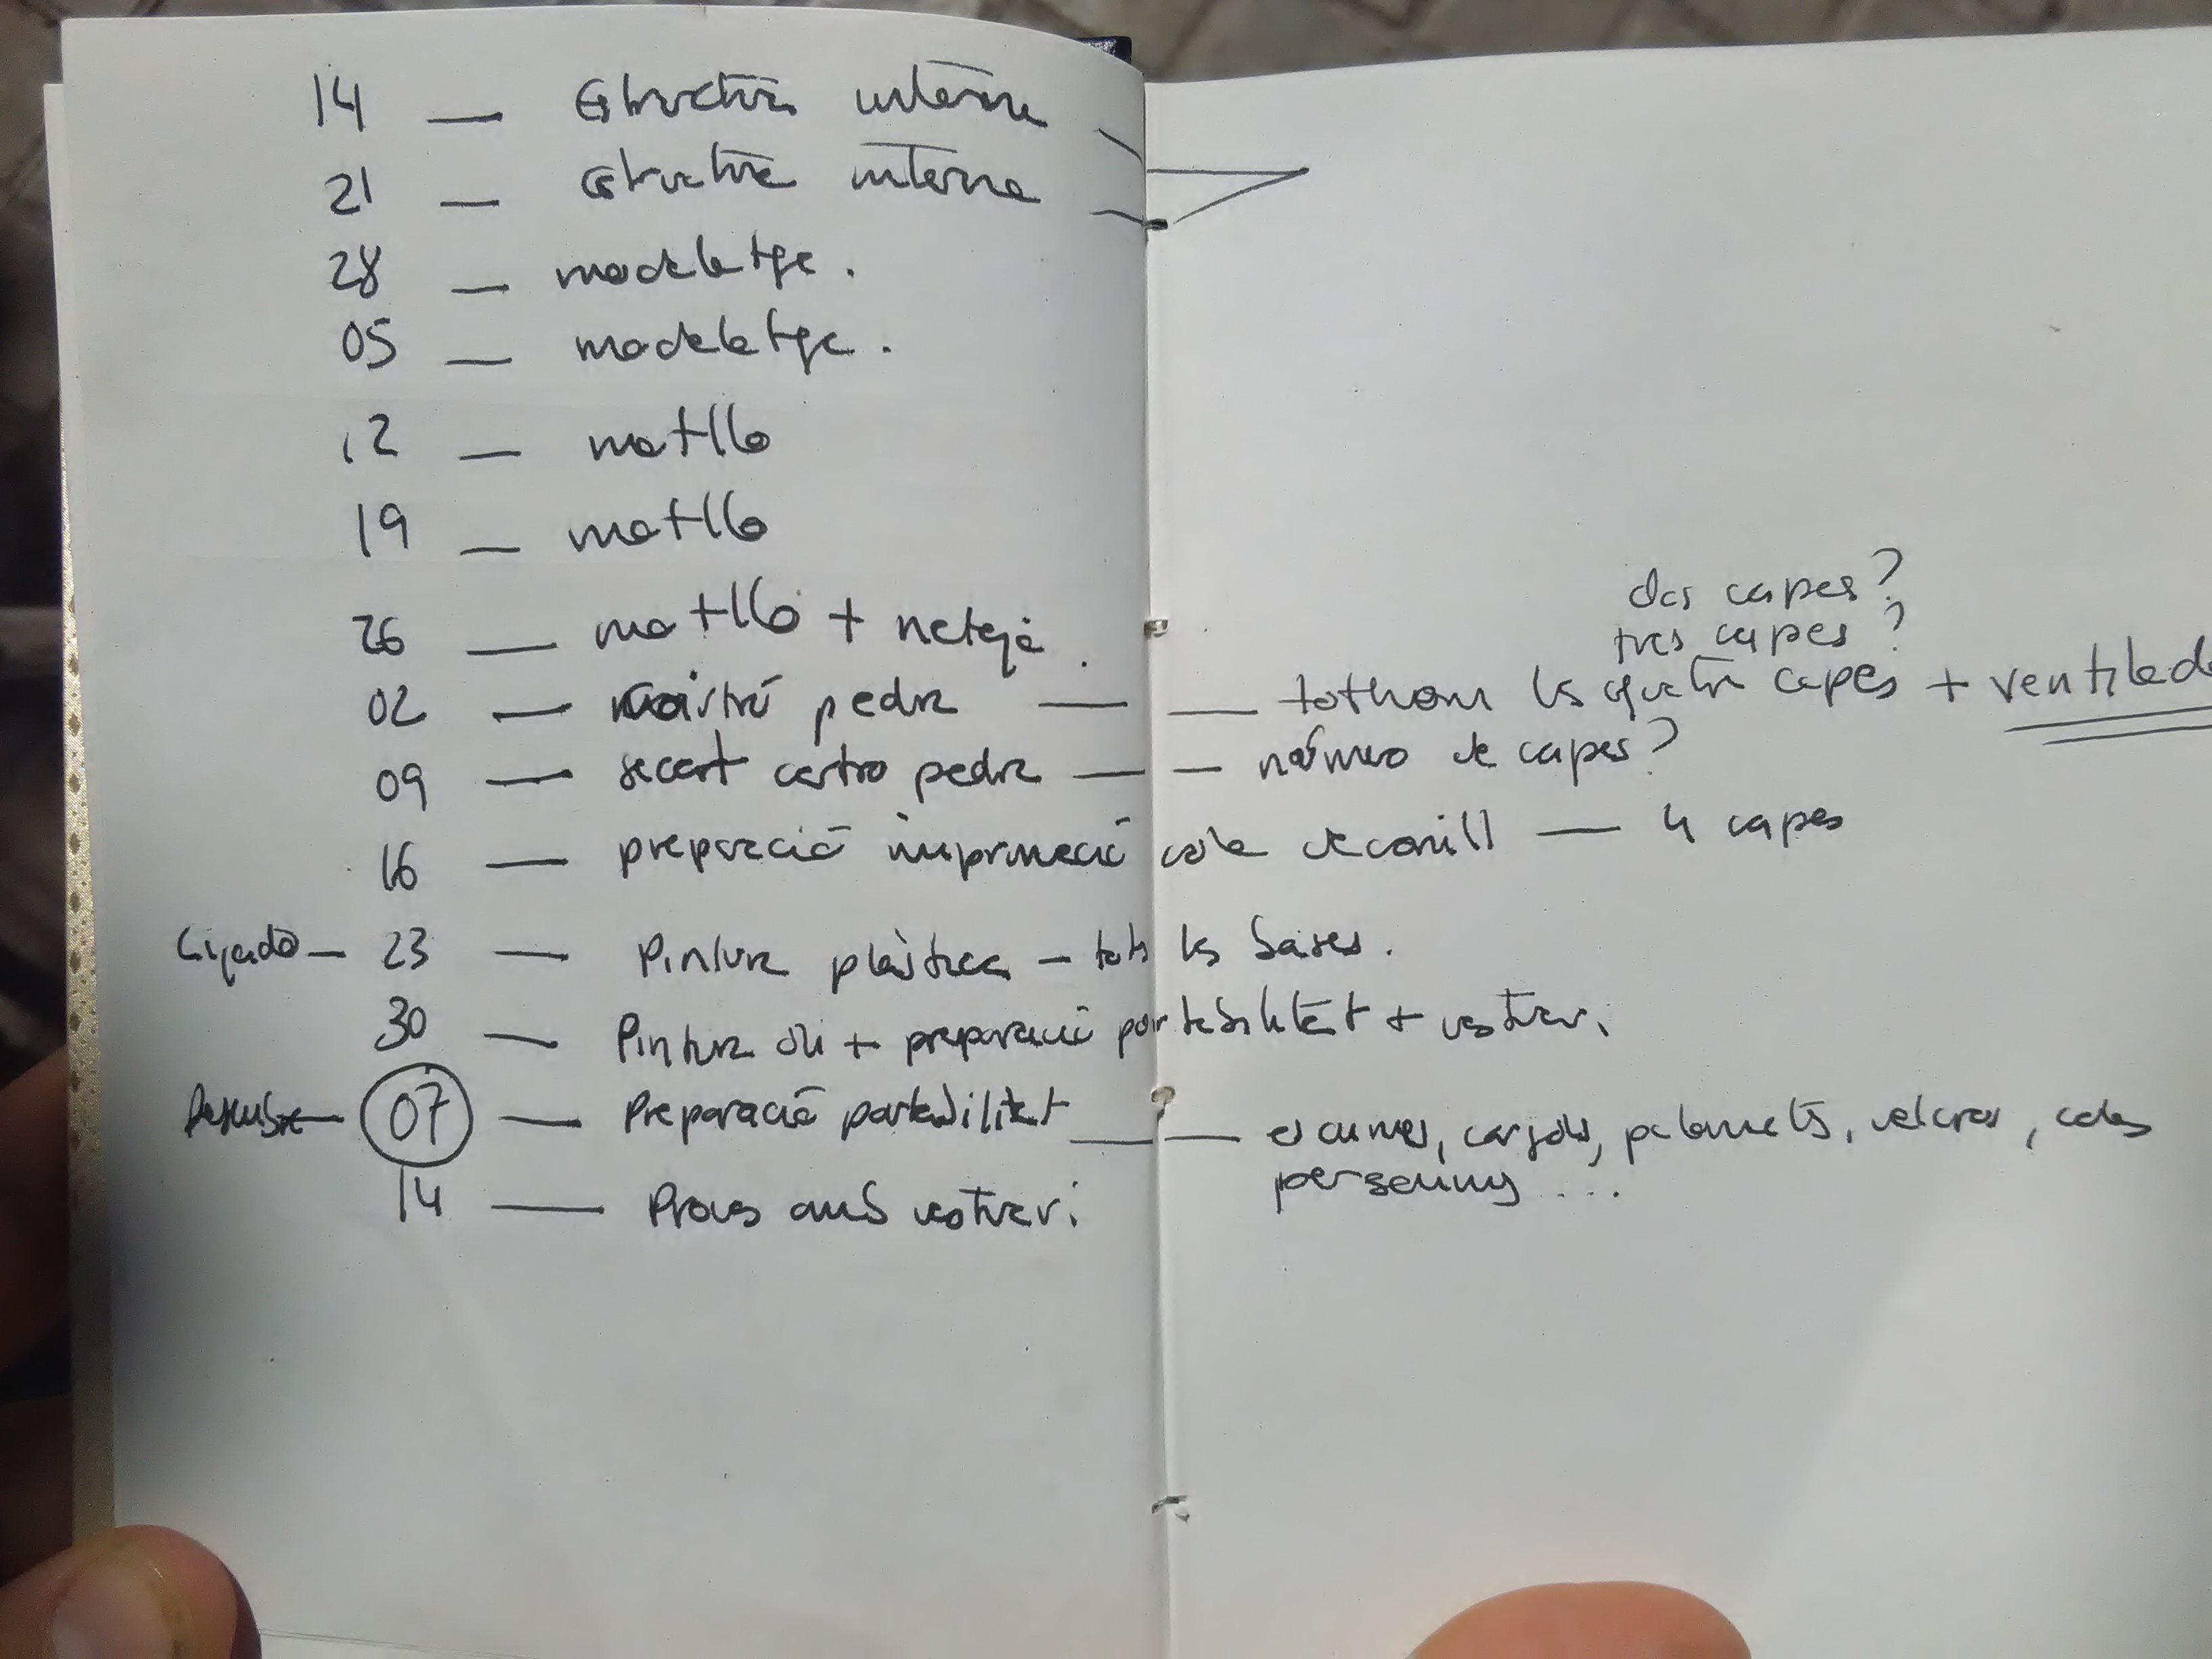 14 — Estructura interna
21 — Estructura interna
28 — modelatge.
05 — modelatge.
12 — motllo
19 — motllo
dos capes?
26 — motlló + neteja.
tres capes?
02 — cartró pedra — — tothom les quatre capes + ventilad
09 — secant cartró pedra — — número de capes?
16 — preparació imprimació cola de conill — 4 capes
Lijado — 23 — Pintura plàstica — tots les bases.
30 — Pintura oli + preparació portabilitat + vestuari
07 — Preparació portabilitat — — escumes, cargols, palometes, velcros, coles
14 — Proves amb vestuari